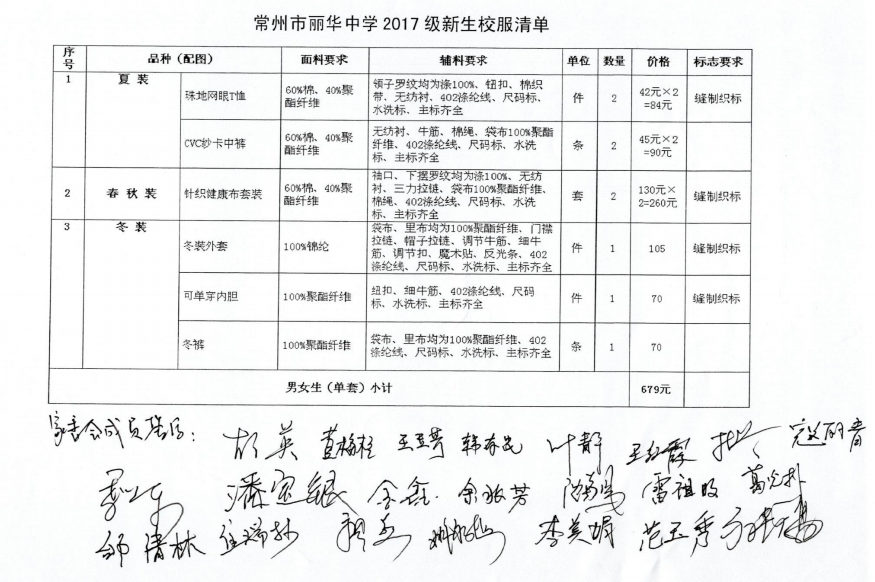 常州市丽华中学2017级新生校服清单
序号 品种（配图） 面料要求 辅料要求 单位 数量 价格 标志要求
1 夏装
珠地网眼T恤 60%棉、40%聚酯纤维 领子罗纹均为涤100%、钮扣、棉织带、无纺衬、402涤纶线、尺码标、水洗标、主标齐全 件 2 42元×2=84元 缝制织标
CVC纱卡中裤 60%棉、40%聚酯纤维 无纺衬、牛筋、棉绳、袋布100%聚酯纤维、402涤纶线、尺码标、水洗标、主标齐全 条 2 45元×2=90元
2 春秋装 针织健康布套装 60%棉、40%聚酯纤维 袖口、下摆罗纹均为涤100%、无纺衬、三力拉链、袋布100%聚酯纤维、棉绳、402涤纶线、尺码标、水洗标、主标齐全 套 2 130元×2=260元 缝制织标
3 冬装
冬装外套 100%锦纶 袋布、里布均为100%聚酯纤维、门襟拉链、帽子拉链、调节牛筋、细牛筋、调节扣、魔术贴、反光条、402涤纶线、尺码标、水洗标、主标齐全 件 1 105 缝制织标
可单穿内胆 100%聚酯纤维 纽扣、细牛筋、402涤纶线、尺码标、水洗标、主标齐全 件 1 70 缝制织标
冬裤 100%聚酯纤维 袋布、里布均为100%聚酯纤维、402涤纶线、尺码标、水洗标、主标齐全 条 1 70
男女生（单套）小计 679元
家委会成员签名： 胡英 叶静
潘宝银 金鑫 余振芳 雷祖改
邹清林 李美娟 范玉秀